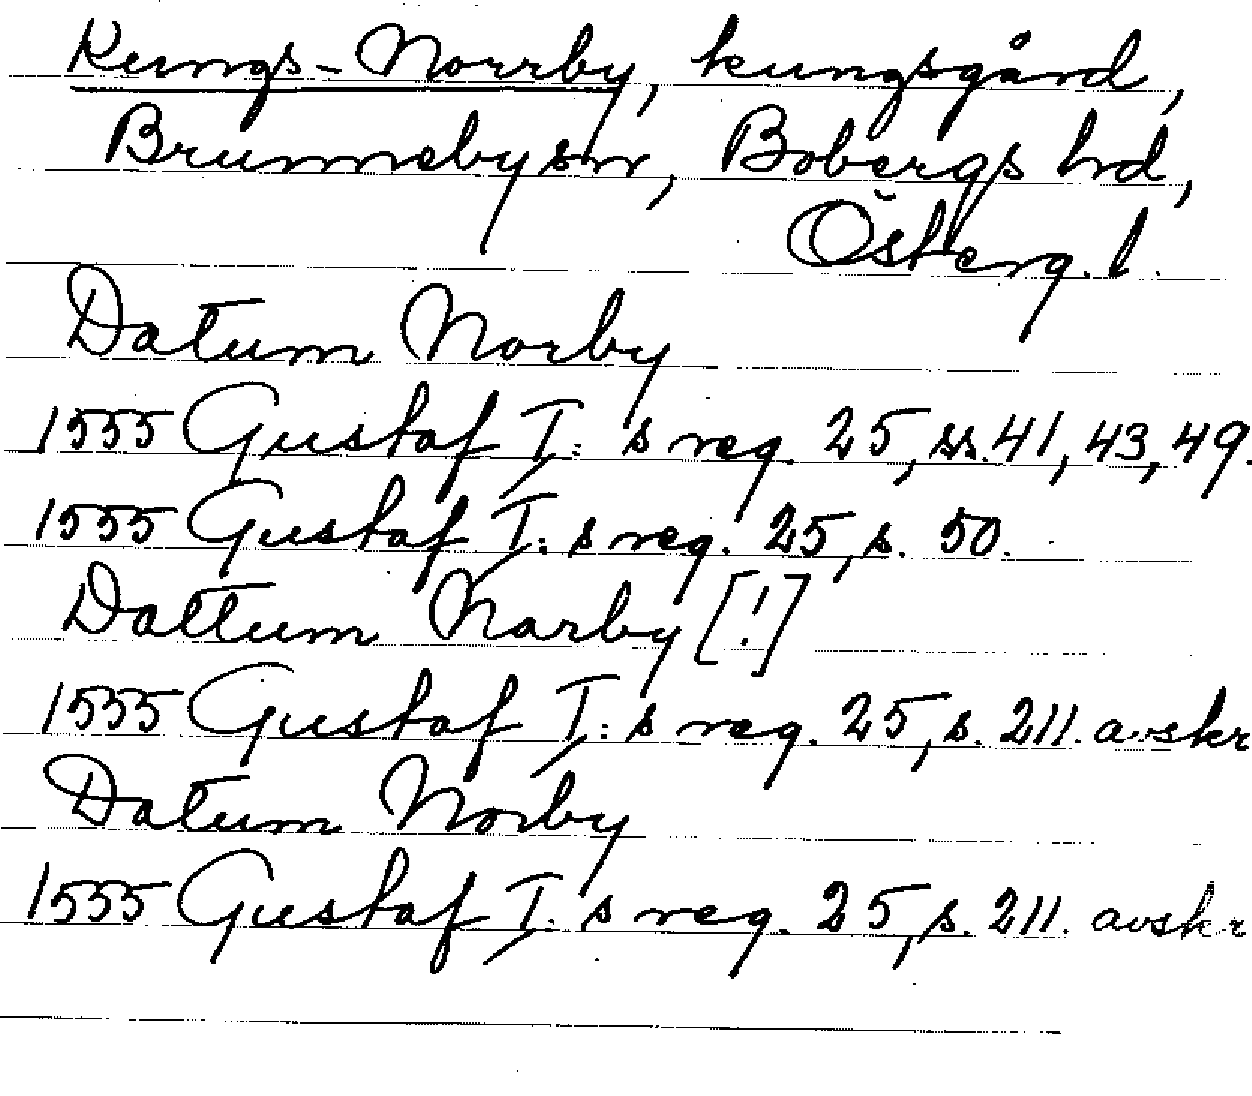 Kungs-Norrby, kungsgård,
Brunneby sn, Bobergs hd,
Österg. l.
Datum Norby
1555 Gustaf I:s reg. 25, ss. 41, 43, 49.
1555 Gustaf I:s reg. 25, s. 50.
Dattum Narby [!]
1555 Gustaf I:s reg. 25, s. 211. avskr
Datum Norby
1555 Gustaf I:s reg. 25, s. 211. avskr